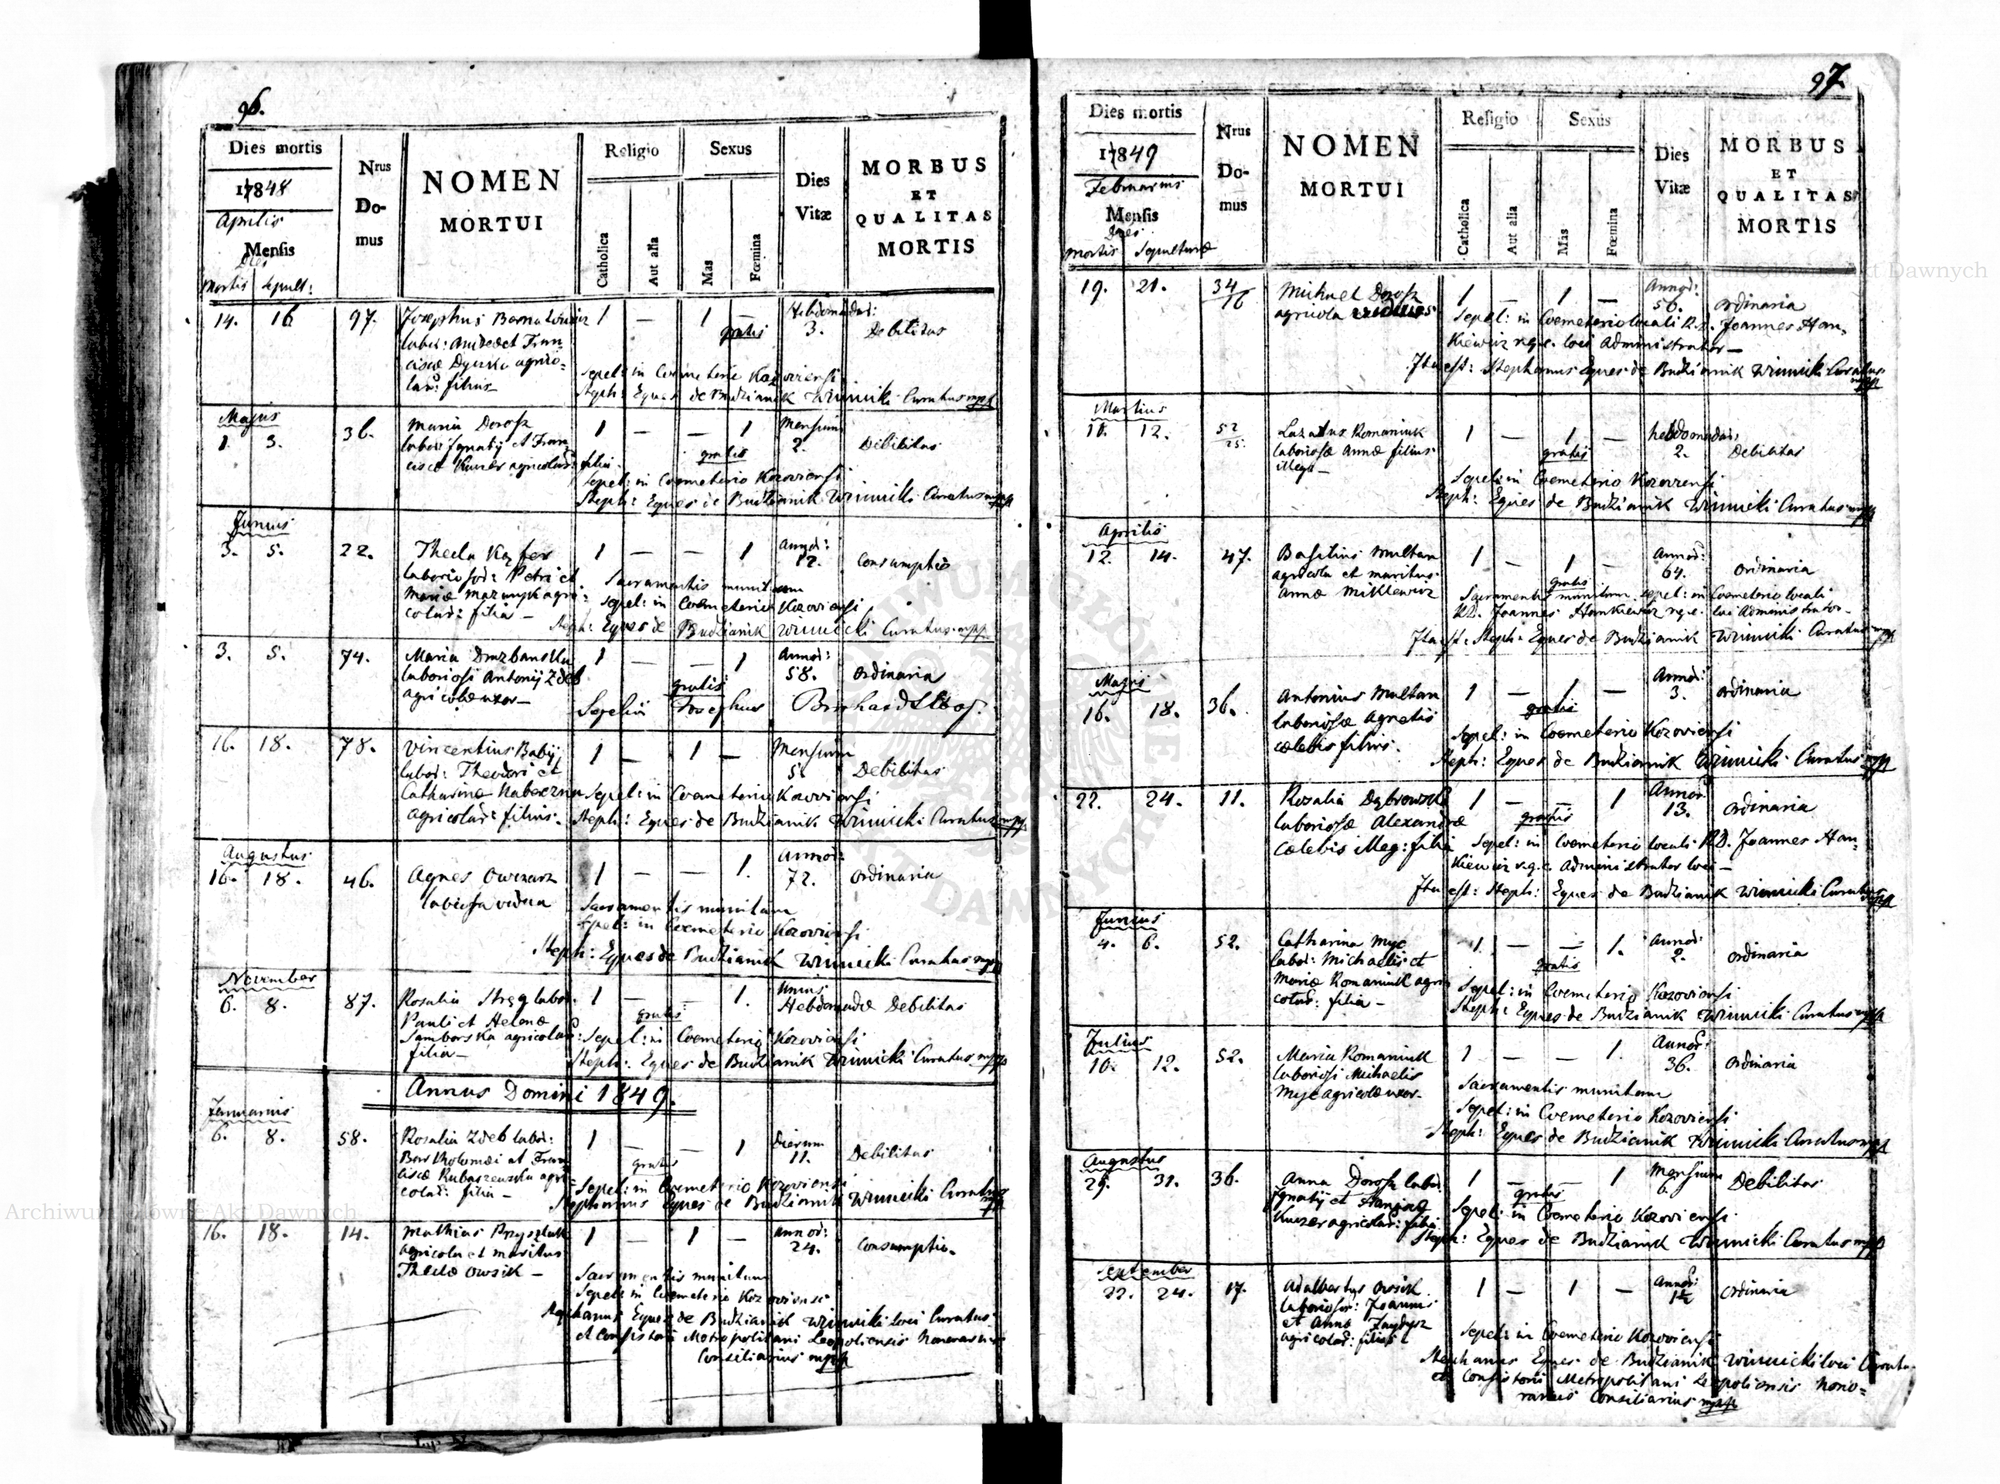 96.
Dies mortis
17848
Aprilis
Mensis
Dies
Mortis Sepult:
Nrus
Do-
mus
NOMEN
MORTUI
Religio
Catholica
Aut alia
Sexus
Mas
Fœmina
Dies
Vitæ
MORBUS
ET
QUALITAS
MORTIS
14. 16. 97. Josephus 1 — 1 — Hebdomadar:
gratis 3. Debilitas
cisca Dyczko agrico-
lar: filius
Sepel: in Coemeterio Kozoviensi
Steph: Eques de Budzianik Winnicki Curatus mpp
Majus
1. 3. 36. Maria Dorosz 1 — — 1 Mensium
labor: Ignatij et Fran gratis 2. Debilitas
cisca Kunzer agricolar: filia
Sepel: in Coemeterio Kozoviensi
Steph: Eques de Budzianik Winnicki Curatus mpp
Junius
3. 5. 22. Thecla 1 — — 1 Annor:
12. Consumptio
laborosor: Petri et
Mariæ Mazuryk agri-
colar: filia —
Sacramentis munitam
Sepel: in Coemeterio Kozoviensi
Steph: Eques de Budzianik Winnicki Curatus mpp
3. 5. 74. Maria Druzbanska 1 — — 1 Annor:
laboriosi Antonij Zdeb gratis 58. ordinaria
agricolæ uxor —
Sepelivi Josephus
16. 18. 78. Vincentius Babij 1 — 1 — Mensium
labor: Theodori et 5. Debilitas
Catharinæ
agricolar: filius.
Sepel: in Coemeterio Kozoviensi
Steph: Eques de Budzianik Winnicki Curatus mpp
Augustus
16. 18. 46. Agnes Owczarz 1 — — 1. Annor:
vidua 72. ordinaria
Sacramentis munitam
Sepel: in Coemeterio Kozoviensi
Steph: Eques de Budzianik Winnicki Curatus mpp
November
6. 8. 87. Rosalia labor. 1 — — 1. Unius
Pauli et Helenæ gratis Hebdomadæ Debilitas
Samborska agricolar:
filia —
Sepel: in Coemeterio Kozoviensi
Steph: Eques de Budzianik Winnicki Curatus mpp
Annus Domini 1849.
Januarius
6. 8. 58. Rosalia Zdeb labor: 1 — — 1 Dierum
Bartholomæi et Fran gratis 11. Debilitas
ciscæ Kubaszewska agri-
colar: filia —
Sepel: in Coemeterio Kozoviensi
Stephanus Eques de Budzianik Winnicki Curatus mpp
16. 18. 14. Mathias Przysztak 1 — 1 — Annor:
agricola et maritus 24. Consumptio.
Theclæ Owsik —
Sacramentis munitum
Sepel: in Coemeterio Kozoviensi
Stephanus Eques de Budzianik Winnicki Loci Curatus
et Consistorii Metropolitani Leopoliensis Honorarius
Consiliarius mpp
97.
Dies mortis
17849
Februarius
Mensis
Dies
Mortis Sepulturæ
Nrus
Do-
mus
NOMEN
MORTUI
Religio
Catholica
Aut alia
Sexus
Mas
Fœmina
Dies
Vitæ
MORBUS
ET
QUALITAS
MORTIS
19. 21. 34/16 Michael Dorosz 1 — 1 — Annor:
agricola 56. ordinaria
Sepel: in Coemeterio locali R.D. Joannes Han-
kiewicz r.g.c. loci Administrator —
Ita est: Stephanus Eques de Budzianik Winnicki Curatus
mpp
Martius
10. 12. 52/25. Lazarus Romaniuk 1 — 1 — hebdomadar:
laboriosæ Annæ filius gratis 2. Debilitas
illeg: —
Sepel: in Coemeterio Kozoviensi
Steph: Eques de Budzianik Winnicki Curatus mpp
Aprilis
12. 14. 47. Basilius Multan 1 — 1 — Annor:
agricola et maritus gratis 64. ordinaria
Annæ Mikiewicz
Sacramentis munitum sepel: in Coemeterio locali
R.D. Joannes Hankiewicz r.g.c. loci Administrator —
Ita est: Steph: Eques de Budzianik Winnicki Curatus mpp
Majus
16. 18. 36. Antonius Multan 1 — 1 — Annor:
laboriosæ Agnetis gratis 3. ordinaria
cælebis filius.
Sepel: in Coemeterio Kozoviensi
Steph: Eques de Budzianik Winnicki Curatus mpp
22. 24. 11. Rosalia Dąbrowska 1 — — 1 Annor:
laboriosæ Alexandræ gratis 13. ordinaria
Cælebis illeg: filia Sepel: in Coemeterio locali R.D. Joannes Han-
kiewicz r.g.c. Administrator loci —
Ita est: Steph: Eques de Budzianik Winnicki Curatus mpp
Junius
4. 6. 52. Catharina Myc 1 — — 1. Annor:
labor: Michaelis et gratis 2. ordinaria
Mariæ Romaniuk agri
colar: filia —
Sepel: in Coemeterio Kozoviensi
Steph: Eques de Budzianik Winnicki Curatus mpp
Julius
10. 12. 52. Maria Romaniuk 1 — — 1. Annor:
laboriosi Michaelis 36. ordinaria
Myc agricolæ uxor.
Sacramentis munitam
Sepel: in Coemeterio Kozoviensi
Steph: Eques de Budzianik Winnicki Curatus mpp
Augustus
29. 31. 36. Anna Dorosz labor: 1 — — 1 Mensium
Ignatij et Franciscæ gratis 6. Debilitas
Kunzer agricolar: filia
Sepel: in Coemeterio Kozoviensi
Steph: Eques de Budzianik Winnicki Curatus mpp
September
22. 24. 17. Adalbertus Owsik 1 — 1 — Annor:
laborior: Joannis ordinaria
et Anna
agricolar: filius
Sepel: in Coemeterio Kozoviensi
Stephanus Eques de Budzianik Winnicki loci Curatus
et Consistorii Metropolitani Leopoliensis Hono-
rarius Consiliarius mpp
Archiwum Główne Akt Dawnych
Archiwum Główne Akt Dawnych
ARCHIWUM GŁÓWNE AKT DAWNYCH